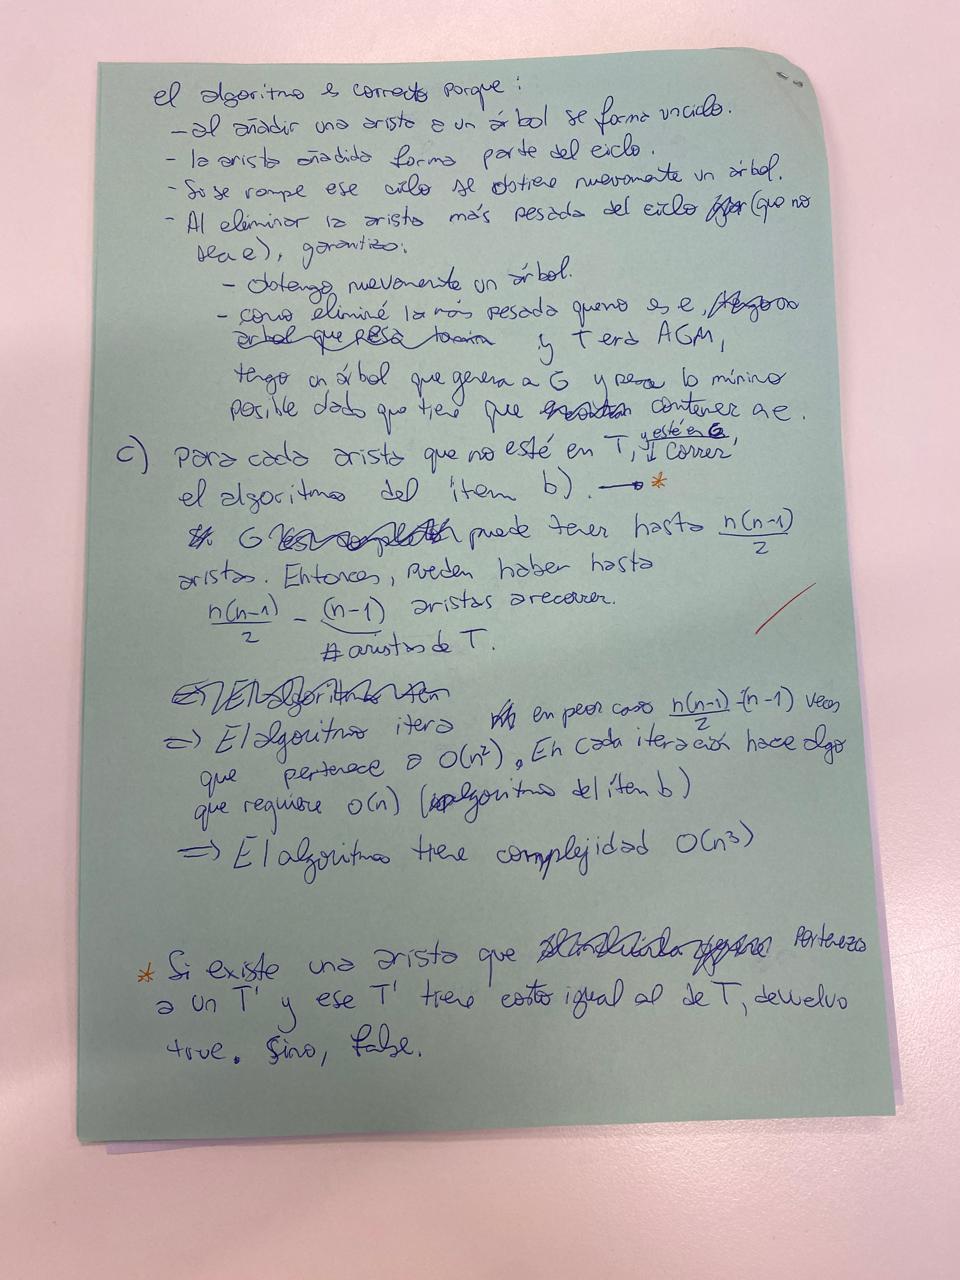 el algoritmo es correcto porque:
- al añadir una arista a un árbol se forma un ciclo.
- la arista añadida forma parte del ciclo.
- Si se rompe ese ciclo se obtiene nuevamente un árbol.
- Al eliminar la arista más pesada del ciclo (que no
sea e), garantizo:
- obtengo nuevamente un árbol.
- como eliminé la más pesada que no es e,
árbol que pesa y T era AGM,
tengo un árbol que genera a G y pesa lo mínimo
posible dado que tiene que contener a e.
c) Para cada arista que no esté en T, y esté en G, correr
el algoritmo del ítem b). → *
G puede tener hasta n(n-1)/2
aristas. Entonces, pueden haber hasta
n(n-1)/2 - (n-1) aristas a recorrer.
# aristas de T.
El algoritmo
⇒ El algoritmo itera en peor caso n(n-1)/2 -(n-1) veces
que pertenece a O(n²). En cada iteración hace algo
que requiere O(n) (algoritmo del ítem b)
⇒ El algoritmo tiene complejidad O(n³)
* Si existe una arista que pertenezca
a un T' y ese T' tiene costo igual al de T, devuelvo
true. Sino, false.